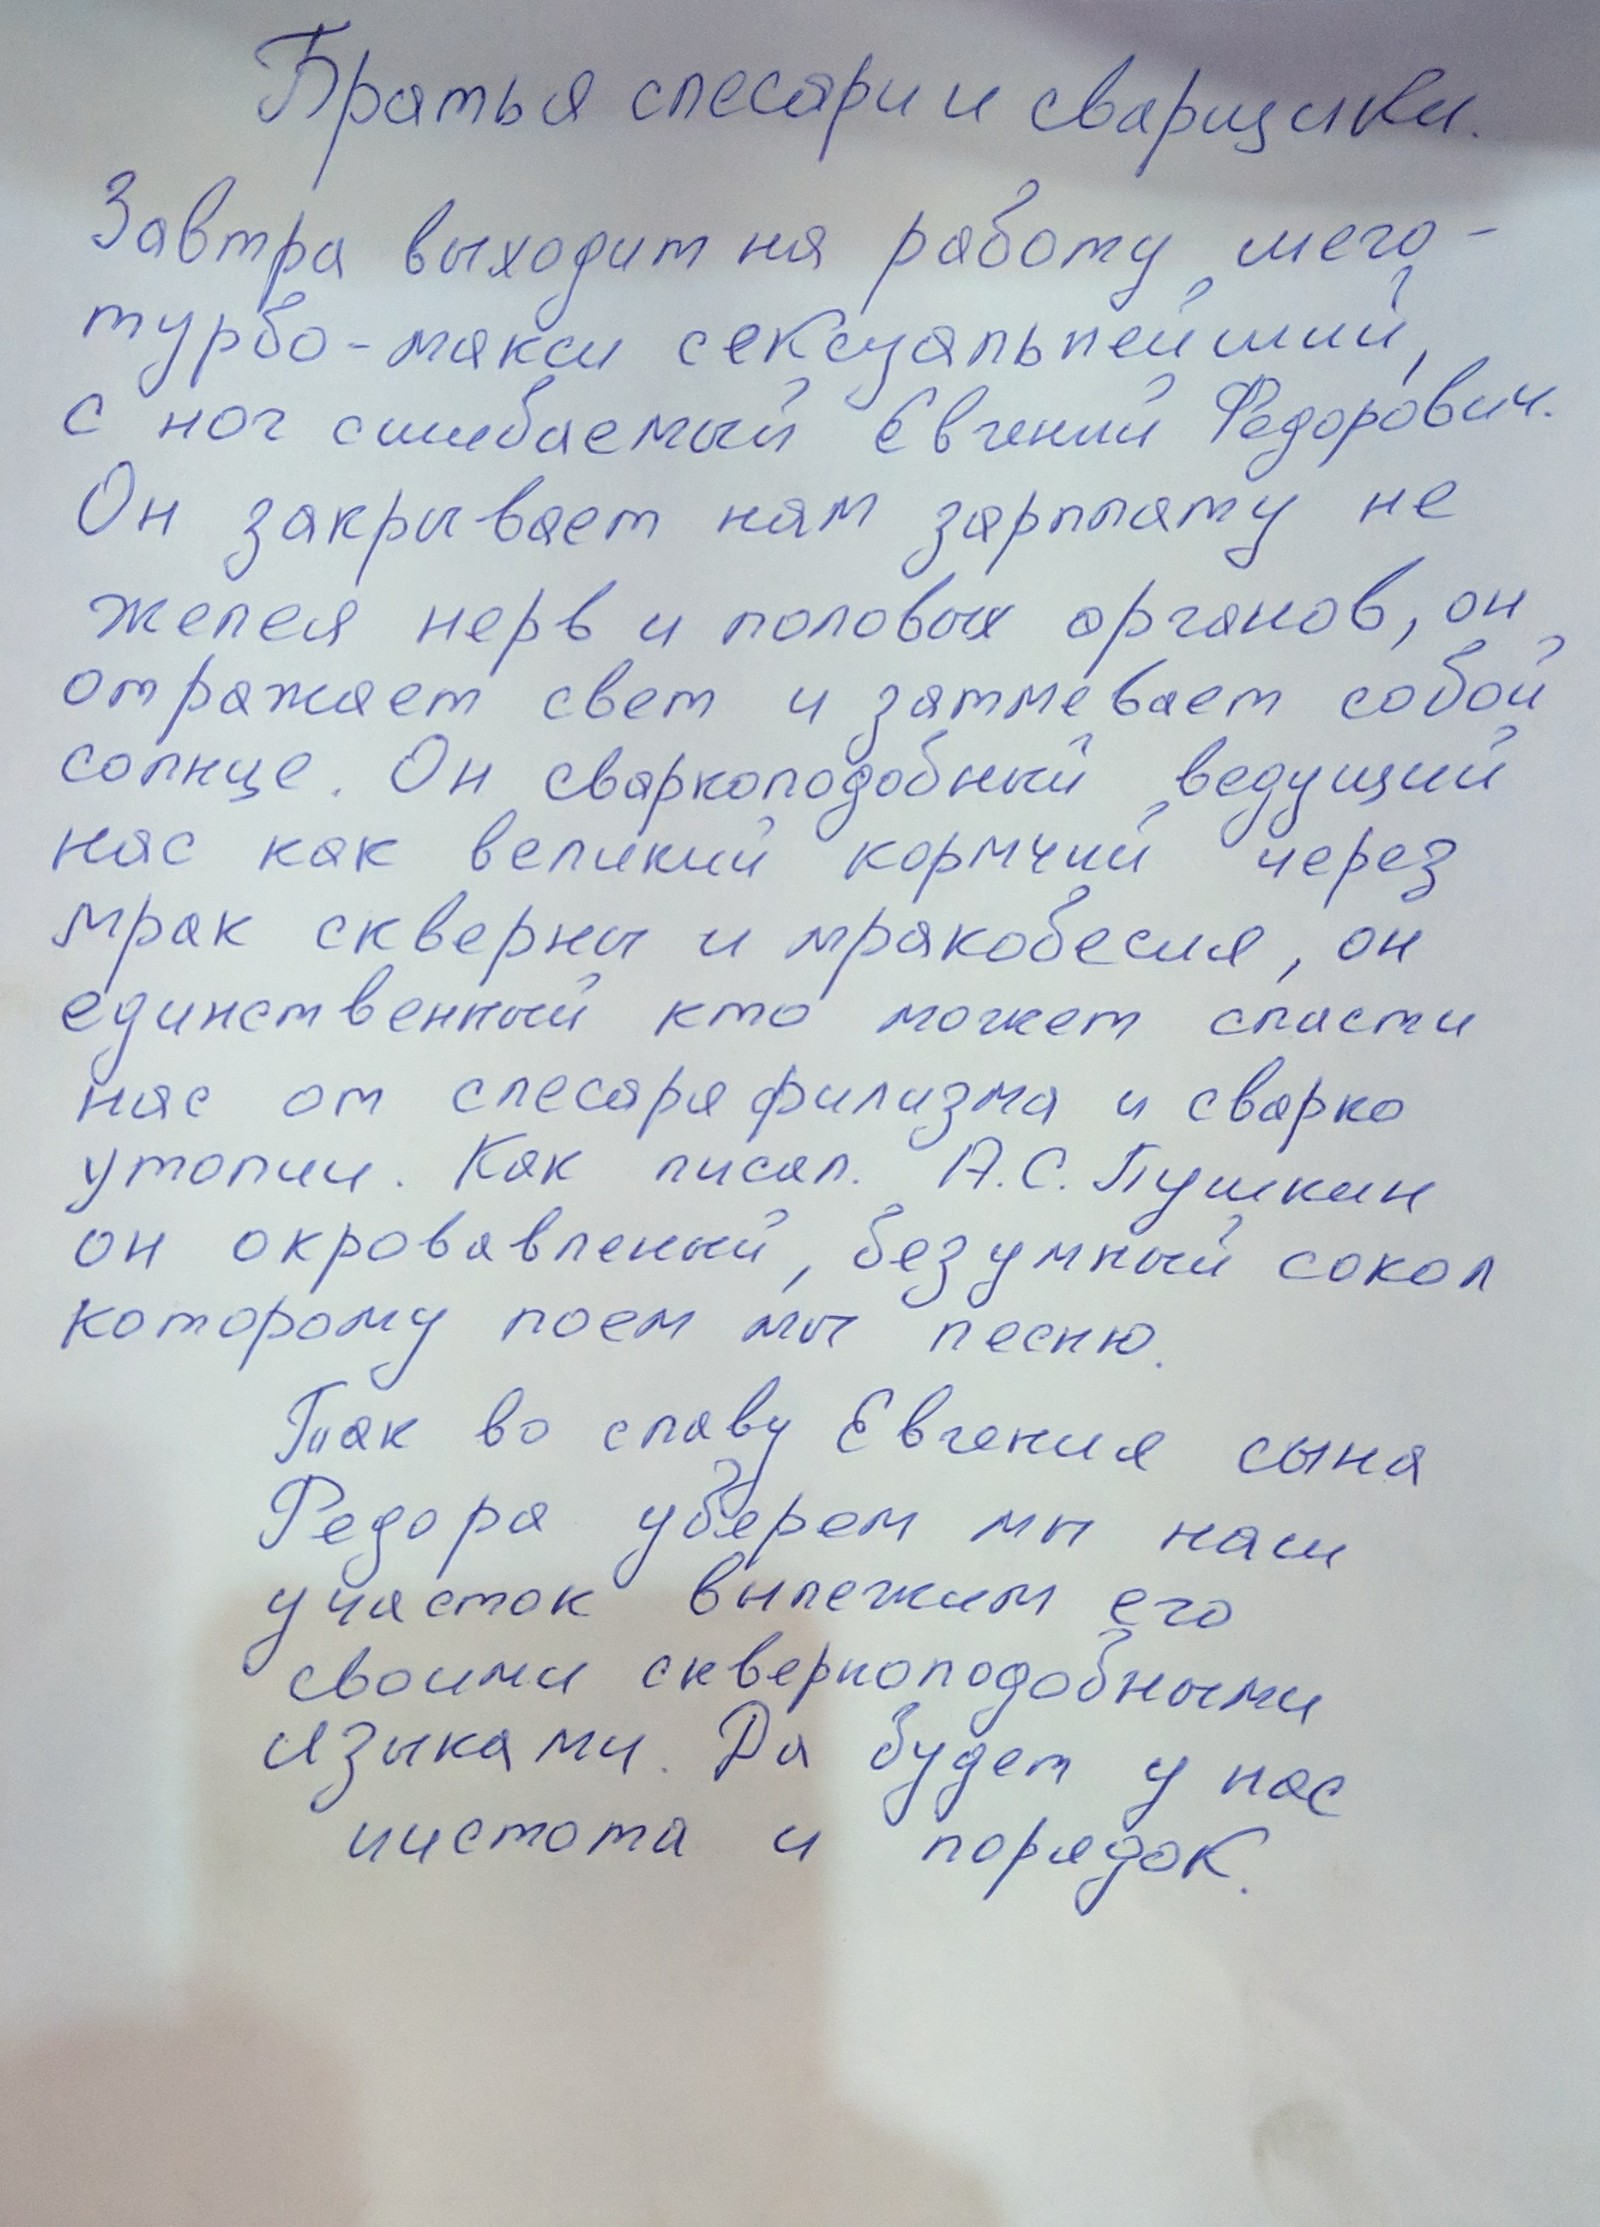 Братья слесари и сварщики.
Завтра выходит на работу мего-
турбо-макси сексуальнейший,
с ног сшибаемый Евгений Федорович.
Он закрывает нам зарплату не
желея нерв и половых органов, он
отражает свет и затмевает собой
солнце. Он сваркоподобный ведущий
нас как великий кормчий через
мрак скверны и мракобесия, он
единственный кто может спасти
нас от слесарафилизма и сварко
утопии. Как писал. А.С. Пушкин
он окровавленый, безумный сокол
которому поем мы песню.
Так во славу Евгения сына
Федора уберем мы наш
участок вылежим его
своими скверноподобными
языками. Да будет у нас
чистота и порядок.